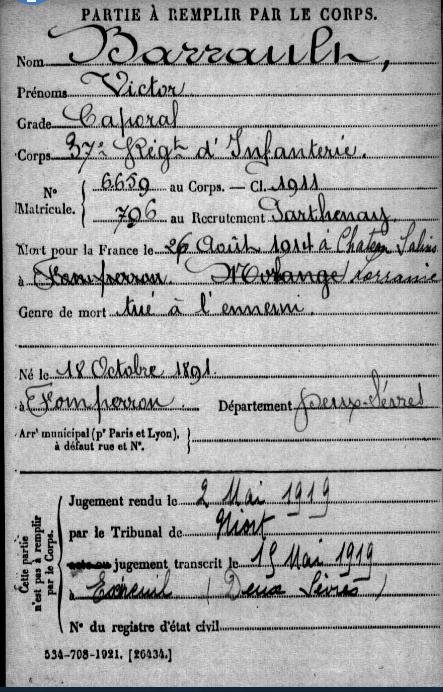 PARTIE À REMPLIR PAR LE CORPS.
Nom Barrault,
Prénoms Victor
Grade Caporal
Corps 37e Régt d'Infanterie.
N° Matricule. { 6659 au Corps. — Cl. 1911
796 au Recrutement Parthenay
Mort pour la France le 26 Août 1914 à Chateau Salins
à Fomperron. Morhange Lorraine
Genre de mort tué à l'ennemi
Né le 18 Octobre 1891.
à Fomperron Département Deux-Sèvres
Arrt municipal (pr Paris et Lyon), à défaut rue et N°. }
Cette partie n'est pas à remplir par le Corps. {
Jugement rendu le 2 Mai 1919
par le Tribunal de Niort
jugement transcrit le 15 Mai 1919
à Exireuil (Deux Sèvres)
N° du registre d'état civil
534-708-1921. [26434.]